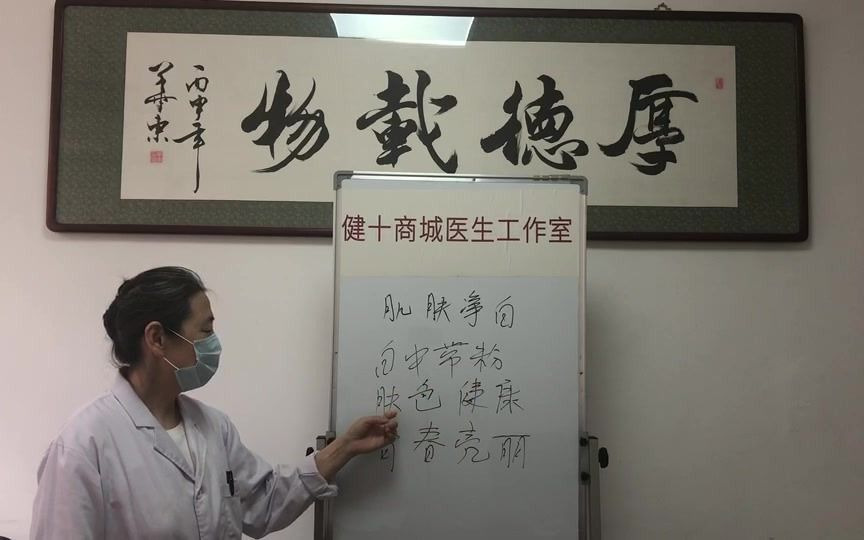 厚德载物
丙申年
华东
健十商城医生工作室
肌肤净白
白中带粉
肤色健康
青春亮丽